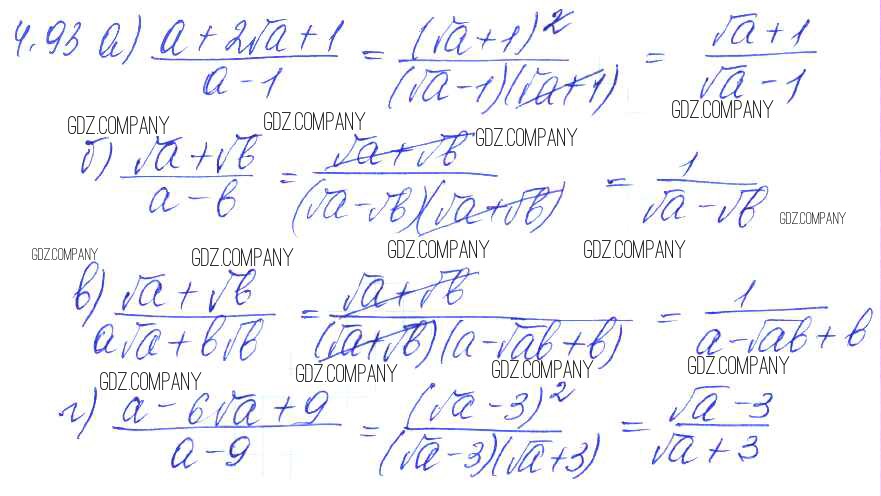 4.93 а) (a + 2√a + 1)/(a - 1) = (√a + 1)²/((√a - 1)(√a + 1)) = (√a + 1)/(√a - 1)
GDZ.COMPANY GDZ.COMPANY GDZ.COMPANY GDZ.COMPANY
б) (√a + √b)/(a - b) = (√a + √b)/((√a - √b)(√a + √b)) = 1/(√a - √b)
GDZ.COMPANY
GDZ.COMPANY GDZ.COMPANY GDZ.COMPANY GDZ.COMPANY
в) (√a + √b)/(a√a + b√b) = (√a + √b)/((√a + √b)(a - √ab + b)) = 1/(a - √ab + b)
GDZ.COMPANY GDZ.COMPANY GDZ.COMPANY GDZ.COMPANY
г) (a - 6√a + 9)/(a - 9) = (√a - 3)²/((√a - 3)(√a + 3)) = (√a - 3)/(√a + 3)